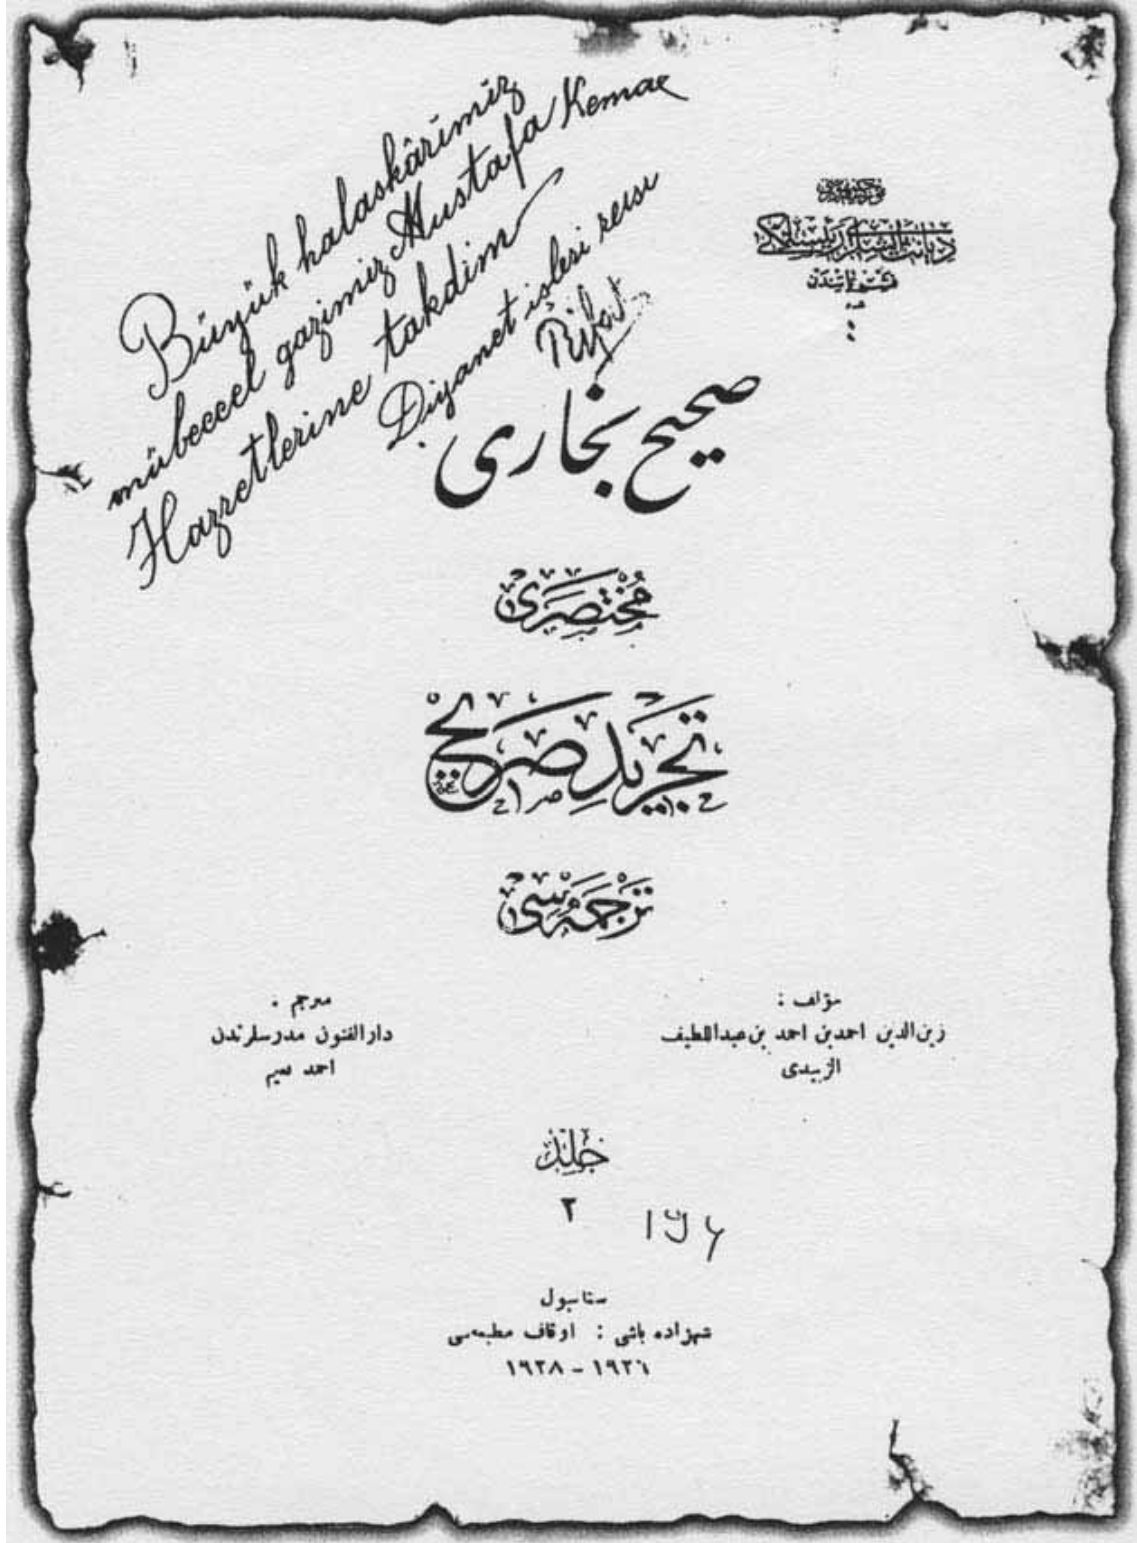 Büyük halaskârimiz
mübeccel gazimiz Mustafa Kemal
Hazretlerine takdim
Diyanet işleri reisi
Rifat
دیانت ایشلری ریاستی
نشریاتندن
صحیح بخاری
مختصری
تجرید صریح
ترجمه سی
مؤلف :
زین الدین احمد بن احمد بن عبداللطیف
الزبیدی
مترجم :
دارالفنون مدرسلرندن
احمد نعیم
جلد
٢
ستانبول
شهزاده باشی : اوقاف مطبعه سی
١٩٢٨ - ١٩٢٦